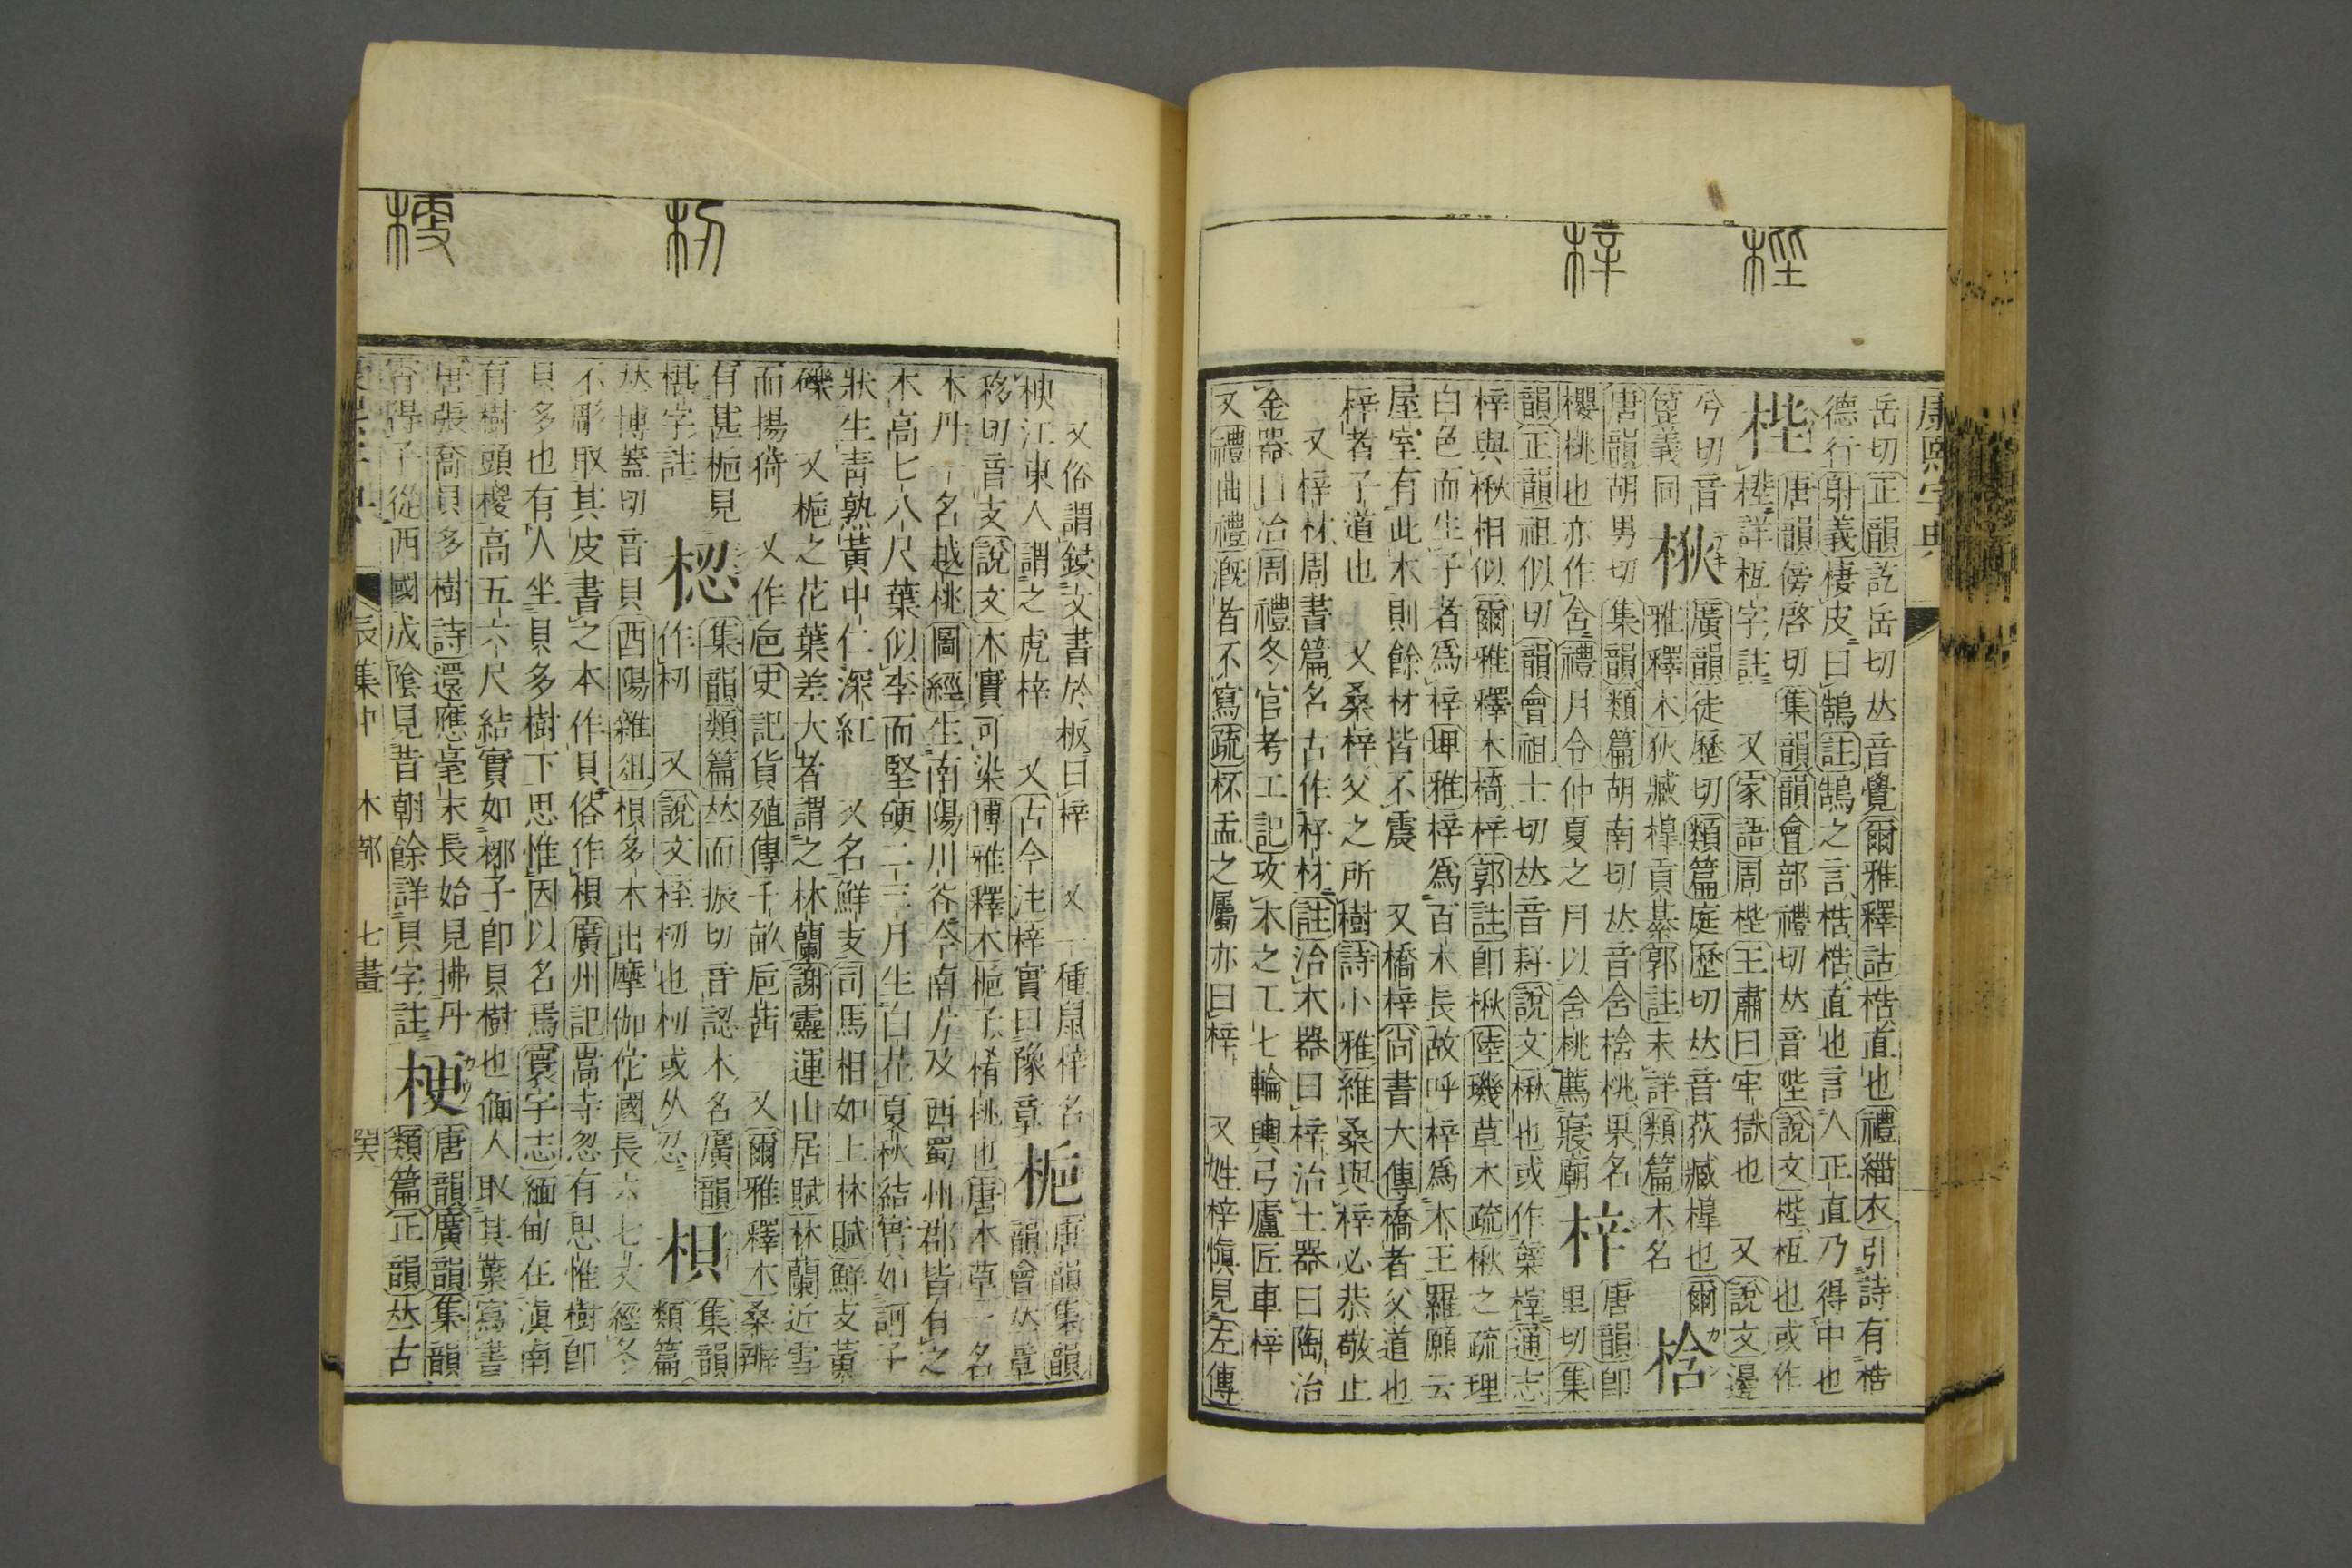 梐
梓
康熙字典
岳切正韻訖岳切𠀤音覺爾雅釋詁梏直也禮緇衣引詩有梏
德行射義棲皮曰鵠註鵠之言梏梏直也言人正直乃得中也
梐
唐韻傍啓切集韻韻會部禮切𠀤音陛說文梐枑也或作
梐詳枑字註 又家語周梐王肅曰牢獄也 又說文邊
兮切音
䇑義同
梑
廣韻徒歷切類篇庭歷切𠀤音荻臧槔也爾
雅釋木狄臧槔貢綦郭註未詳類篇木名
梒
唐韻胡男切集韻類篇胡南切𠀤音含梒桃果名
櫻桃也亦作含禮月令仲夏之月以含桃薦寢廟
梓
唐韻卽
里切集
韻正韻祖似切韻會祖士切𠀤音籽說文楸也或作榟通志
梓與楸相似爾雅釋木椅梓郭註卽楸陸璣草木疏楸之疏理
白色而生子者爲梓埤雅梓爲百木長故呼梓爲木王羅願云
屋室有此木則餘材皆不震 又橋梓尙書大傳橋者父道也
梓者子道也 又桑梓父之所樹詩小雅維桑與梓必恭敬止
又梓材周書篇名古作杍材註治木器曰梓治土器曰陶治
金器曰冶周禮冬官考工記攻木之工七輪輿弓廬匠車梓
又禮曲禮漑者不寫疏杯盂之屬亦曰梓 又姓梓愼見左傳
梕
梗
又俗謂鋟文書於板曰梓 又一種鼠梓名
楰江東人謂之虎梓 又古今注梓實曰豫章
梔
唐韻集韻
韻會𠀤章
移切音支說文木實可染博雅釋木梔子楮桃也唐本草一名
木丹一名越桃圖經生南陽川谷今南方及西蜀州郡皆有之
木高七八尺葉似李而堅硬二三月生白花夏秋結實如訶子
狀生靑熟黃中仁深紅 又名鮮支司馬相如上林賦鮮支黃
礫 又梔之花葉差大者謂之林蘭謝靈運山居賦林蘭近雪
而揚猗 又作巵史記貨殖傳千畝巵茜 又爾雅釋木桑辨
有葚梔見
葚字註
梕
集韻類篇𠀤而振切音認木名廣韻
作杒 又說文桎杒也杒或从忍
梖
集韻
類篇
𠀤博蓋切音貝酉陽雜俎梖多木出摩伽佗國長六七丈經冬
不彫取其皮書之本作貝俗作梖廣州記嵩寺忽有思惟樹卽
貝多也有人坐貝多樹下思惟因以名焉寰宇志緬甸在滇南
有樹頭椶高五六尺結實如椰子卽貝樹也緬人取其葉寫書
唐張喬貝多樹詩還應毫末長始見拂丹
霄得子從西國成陰見昔朝餘詳貝字註
梗
唐韻廣韻集韻
類篇正韻𠀤古
康熙字典 辰集中 木部 七畫